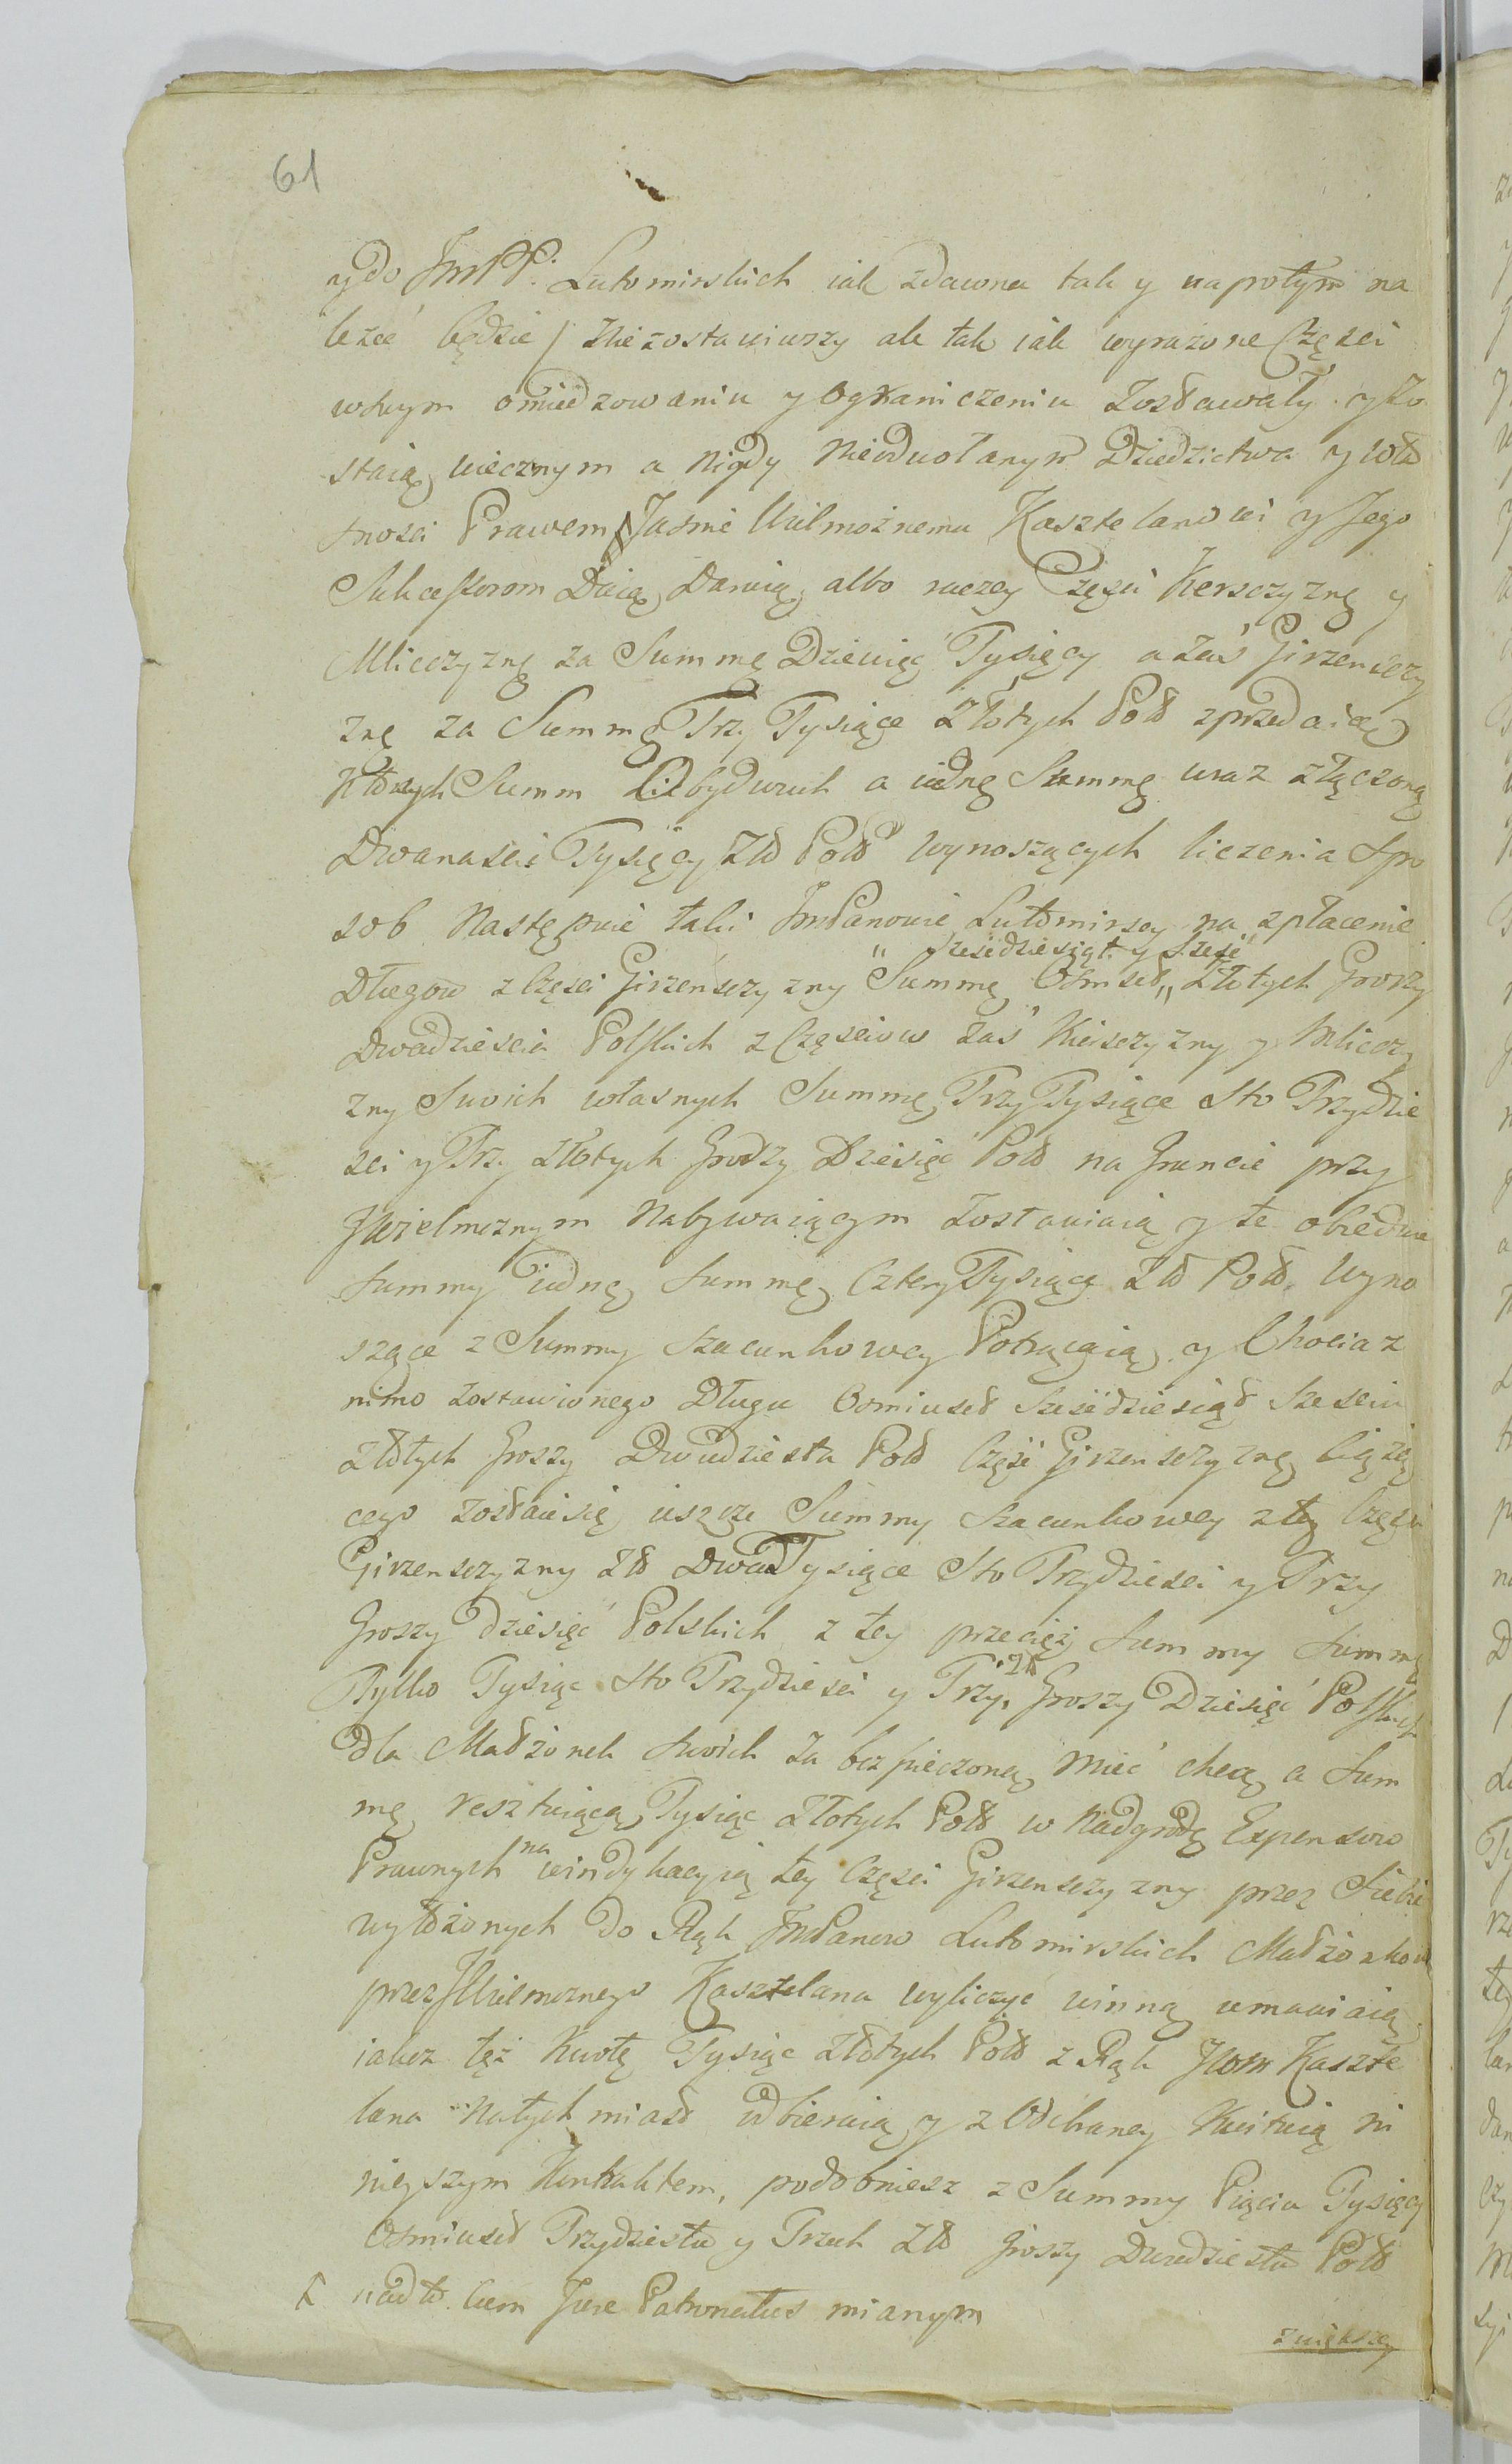 61
y do JmPP. Lutomirskich iak zdawna tak y napotym na
leżeć będzie / niezostawiwszy ale tak iak wyrażone Części
wswym omiedzowaniu y Ograniczeniu zostawały y zo
staią, wiecznym a nigdy nieodwołanym Dziedzictwa y Wła
sności Prawem Jaśnie Wielmożnemu Kasztelanowi y Jego
Sukcessorom Daią, Daruią, albo raczey Części Kersczyznę y
Mlicczyznę za Summę Dziewięć Tysięcy a zaś Girzensczy
znę za Summę Trzy Tysiące Złotych Pold zprzedaią
Których Summ Obydwuch a iednę Summę wraz złączoną
Dwanaście Tysięcy Zło Pold wynoszących liczenia spo
sob Następnie taki JmPanowie Lutomirscy na zpłacenie
" sześćdziesiąt y Sześć "
Długow z Części Girzensczyzny Summę Ośmset „ Złotych Groszy
Dwadzieścia Polskich z Częsciow zaś Kiersczyzny y Mliczy
zny Swoich własnych Summę Trzy Tysiące Sto Trzydzie
sci y Trzy złotych Groszy Dziesięć Pold na Gruncie przy
JWielmożnym Nabywaiącym zostawiaią y te obiedwie
summy iednę summę Cztery Tysiące Zło Pold. Wyno
szące z Summy szacunkowey Potrącaią y Chociaz
mimo zostawionego Długu Osmiuset Sześćdziesiąt Szesciu
złotych Groszy Dwudziestu Pold Część Girzensczyznę Ciążą
cego zostaie się ieszcze Summy szacunkowey z tey Części
Girzensczyzny Zło Dwa Tysiące Sto Trzydziesci y Trzy
Groszy dziesięć Polskich z tey przecięż summy summę
Tylko Tysiąc Sto Trzydziesci y Trzy, Zł Groszy Dziesięć Polskich
dla Małżonek swoich za bezpieczoną mieć chcą a Sum
mę resztuiącą Tysiąc Złotych Pold w Nadgrodę Expensow
Prawnych na windykacyią tey Części Girzensczyzny przez Siebie
wyłożonych do Rąk JmPanow Lutomirskich Małżonkow
przez JWielmożnego Kasztelana wyliczyć winną umawiaią,
iakoż też Kwotę Tysiąc złotych Pold z Rąk JWm Kaszte
lana natychmiast odbieraią y z Odebraney Kwituią ni
nieyszym Kontraktem, podobniesz z Summy Pięciu Tysięcy
Ośmiuset Trzydziestu y Trzech Zło Groszy Dwudziestu Pold
nadto Cum Jure Patronatus mianym
zwiększey